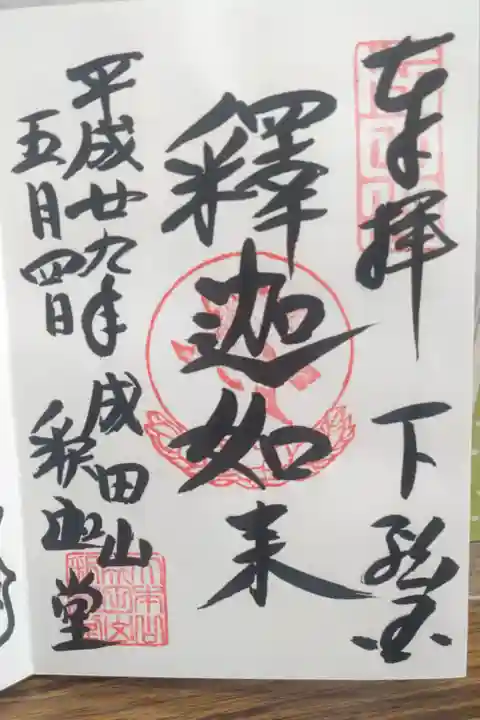 奉拝 下総國
釋迦如来
平成廿九年 成田山
五月四日 釈迦堂